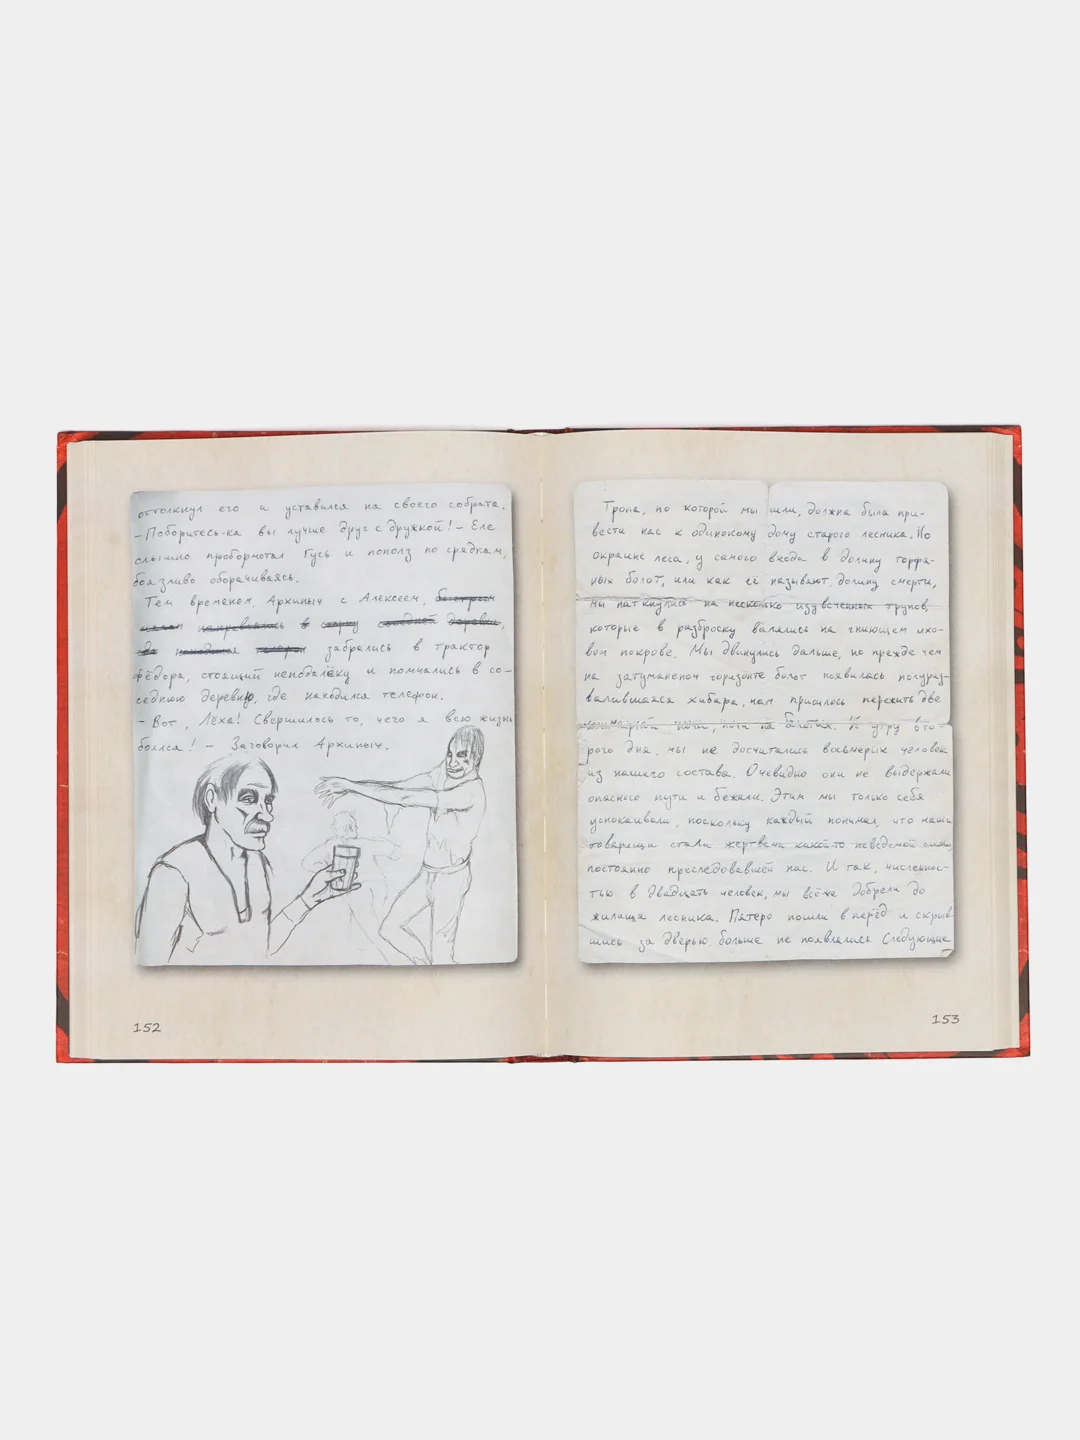 оттолкнул его и уставился на своего собрата.
- Поборитесь-ка вы лучше друг с дружкой! - Еле
слышно пробормотал Гусь и пополз по грядкам,
боязливо оборачиваясь.
Тем временем, Архипыч с Алексеем, быстрым
направились в соседней деревни,
забрались в трактор
Фёдора, стоящий неподалёку и помчались в со-
седнюю деревню, где находился телефон.
- Вот, Лёха! Свершилось то, чего я всю жизнь
боялся! - Заговорил Архипыч.
152
Тропа, по которой мы шли, должна была при-
вести нас к одинокому дому старого лесника. Но
окраине леса, у самого входа в долину торфя-
ных болот, или как её называют, долину смерти,
мы наткнулись на несколько изувеченных трупов,
которые в разброску валялись на гниющем мхо-
вом покрове. Мы двинулись дальше, но прежде чем
на затуманеном горизонте болот появилась полураз-
валившаяся хибара, нам пришлось пережить две
ночи на болотах. К утру вто-
рого дня, мы не досчитались восьмерых человек
из нашего состава. Очевидно они не выдержали
опасного пути и бежали. Этим мы только себя
успокаивали, поскольку каждый понимал, что наши
товарищи стали жертвами какой-то неведомой силы,
постоянно преследовавшей нас. И так, численнос-
тью в двадцать человек, мы всё же добрели до
жилища лесника. Пятеро пошли в перёд и скрыв-
шись за дверью больше не появлялись. Следующие
153